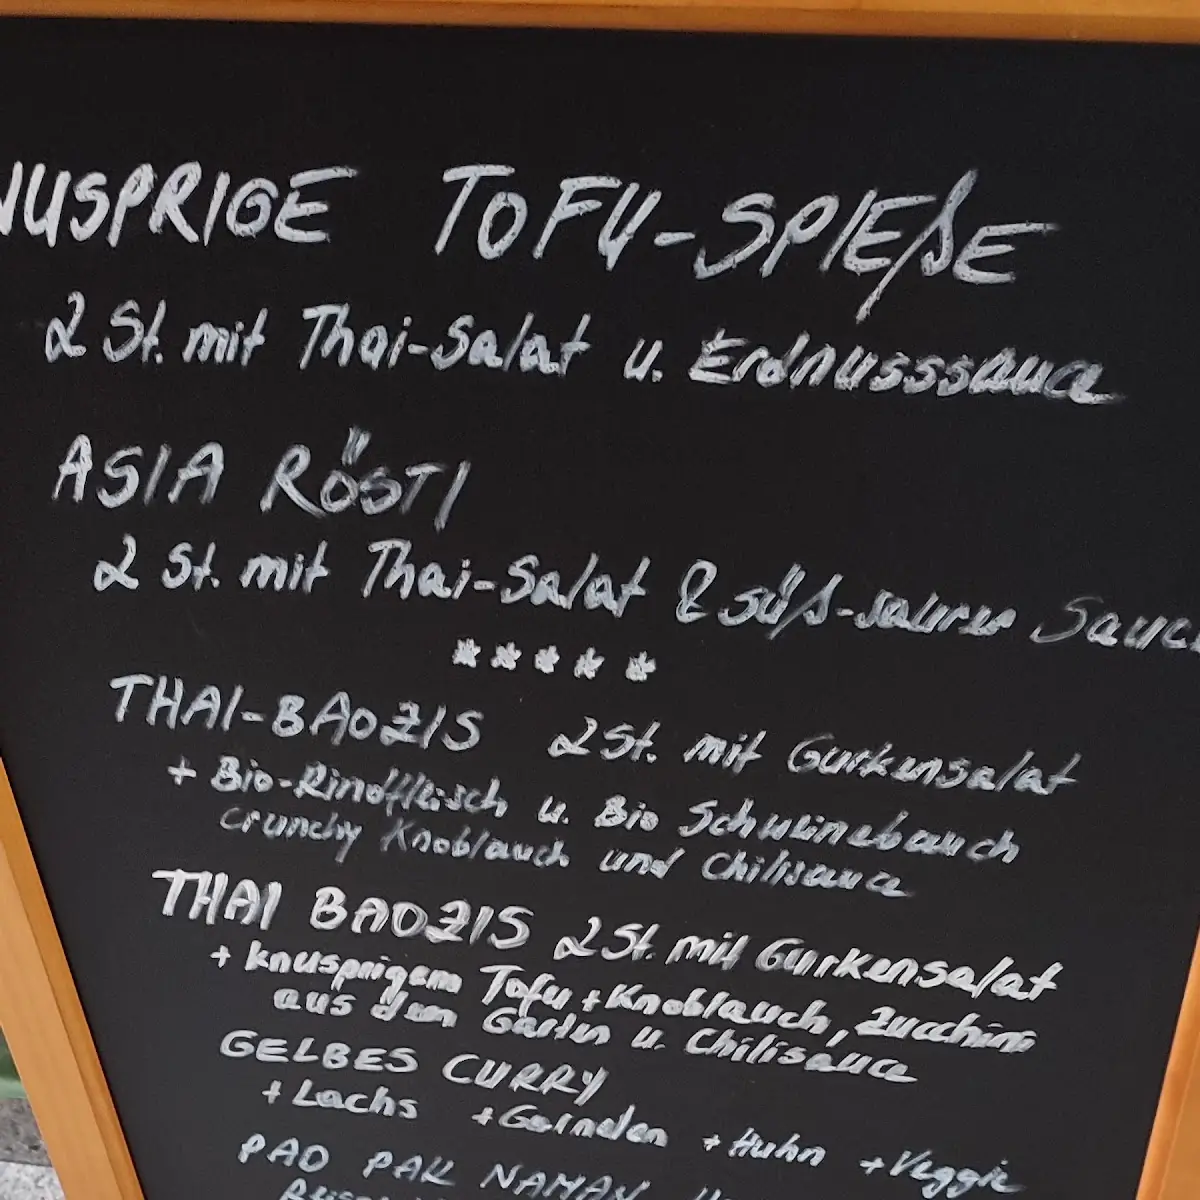 NUSPRIGE TOFU-SPIEßE
2 St. mit Thai-Salat u. Erdnusssauce
ASIA RÖSTI
2 St. mit Thai-Salat & süß-saurer Sauc
*****
THAI-BAOZIS 2 St. mit Gurkensalat
+ Bio-Rindfleisch u. Bio Schweinebauch
crunchy Knoblauch und Chilisauce
THAI BAOZIS 2 St. mit Gurkensalat
+ knusprigem Tofu + Knoblauch, Zucchini
aus dem Garten u. Chilisauce
GELBES CURRY
+ Lachs + Garnelen + Huhn + Veggie
PAD PAK NAMAN